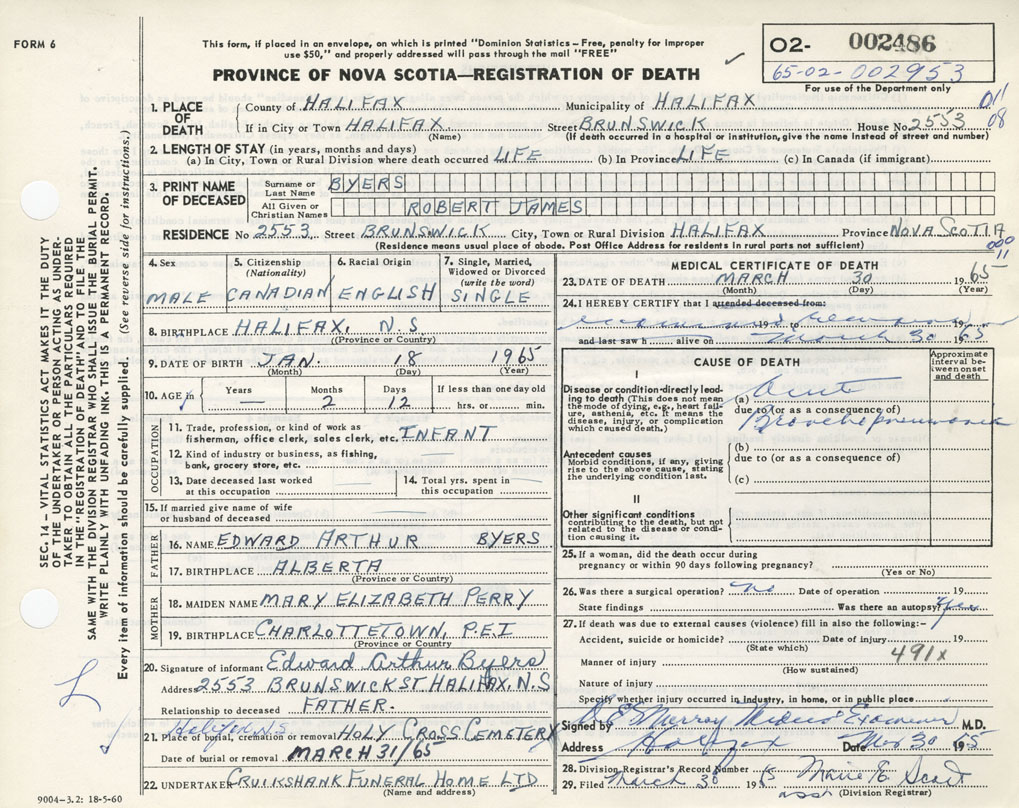 FORM 6
This form, if placed in an envelope, on which is printed "Dominion Statistics – Free, penalty for improper
use $50," and properly addressed will pass through the mail "FREE"
PROVINCE OF NOVA SCOTIA—REGISTRATION OF DEATH
O2- 002486
65-02-002953
For use of the Department only
011
08
1. PLACE OF DEATH
County of HALIFAX Municipality of HALIFAX
If in City or Town HALIFAX Street BRUNSWICK House No. 2553
(Name) (If death occurred in a hospital or institution, give the name instead of street and number)
2. LENGTH OF STAY (in years, months and days)
(a) In City, Town or Rural Division where death occurred LIFE (b) In Province LIFE (c) In Canada (if immigrant)
3. PRINT NAME OF DECEASED
Surname or Last Name BYERS
All Given or Christian Names ROBERT JAMES
RESIDENCE No 2553 Street BRUNSWICK City, Town or Rural Division HALIFAX Province NOVA SCOTIA
(Residence means usual place of abode. Post Office Address for residents in rural parts not sufficient)
000
11
4. Sex
MALE
5. Citizenship
(Nationality)
CANADIAN
6. Racial Origin
ENGLISH
7. Single, Married,
Widowed or Divorced
(write the word)
SINGLE
8. BIRTHPLACE HALIFAX, N.S
(Province or Country)
9. DATE OF BIRTH JAN. 18 1965
(Month) (Day) (Year)
10. AGE in
Years Months Days If less than one day old
— 2 12 hrs. or min.
OCCUPATION
11. Trade, profession, or kind of work as
fisherman, office clerk, sales clerk, etc. INFANT
12. Kind of industry or business, as fishing,
bank, grocery store, etc.
13. Date deceased last worked
at this occupation
14. Total yrs. spent in
this occupation
15. If married give name of wife
or husband of deceased
FATHER
16. NAME EDWARD ARTHUR BYERS
17. BIRTHPLACE ALBERTA
(Province or Country)
MOTHER
18. MAIDEN NAME MARY ELIZABETH PERRY
19. BIRTHPLACE CHARLOTTETOWN, P.E.I
(Province or Country)
20. Signature of informant Edward Arthur Byers
Address 2553 BRUNSWICK ST HALIFAX, N.S
Relationship to deceased FATHER.
Halifax N.S.
21. Place of burial, cremation or removal HOLY CROSS CEMETERY
Date of burial or removal MARCH 31/65
22. UNDERTAKER CRUIKSHANK FUNERAL HOME LTD
(Name and address)
9004-3.2: 18-5-60
MEDICAL CERTIFICATE OF DEATH
23. DATE OF DEATH MARCH 30 1965
(Month) (Day) (Year)
24. I HEREBY CERTIFY that I attended deceased from:
19 to 19
and last saw h alive on March 30 1965
CAUSE OF DEATH
Approximate
interval be-
tween onset
and death
I
Disease or condition directly lead-
ing to death (This does not mean
the mode of dying, e.g., heart fail-
ure, asthenia, etc. It means the
disease, injury, or complication
which caused death.)
(a) Acute
due to (or as a consequence of)
Bronchopneumonia
Antecedent causes
Morbid conditions, if any, giving
rise to the above cause, stating
the underlying condition last.
(b)
due to (or as a consequence of)
(c)
II
Other significant conditions
contributing to the death, but not
related to the disease or condi-
tion causing it.
25. If a woman, did the death occur during
pregnancy or within 90 days following pregnancy?
(Yes or No)
26. Was there a surgical operation? No Date of operation 19
State findings Was there an autopsy? Yes
27. If death was due to external causes (violence) fill in also the following:–
Accident, suicide or homicide? Date of injury 19
(State which)
491x
Manner of injury
(How sustained)
Nature of injury
Specify whether injury occurred in industry, in home, or in public place
Signed by Murray Medical Examiner M.D.
Address Halifax Date Mar 30 1965
28. Division Registrar's Record Number
29. Filed March 30 1965 Marie E Scott
(Division Registrar)
SEC. 14 – VITAL STATISTICS ACT MAKES IT THE DUTY
OF THE UNDERTAKER OR PERSON ACTING AS UNDER-
TAKER TO OBTAIN ALL THE PARTICULARS REQUIRED
IN THE "REGISTRATION OF DEATH" AND TO FILE THE
SAME WITH THE DIVISION REGISTRAR WHO SHALL ISSUE THE BURIAL PERMIT.
WRITE PLAINLY WITH UNFADING INK. THIS IS A PERMANENT RECORD.
Every item of information should be carefully supplied. (See reverse side for instructions.)